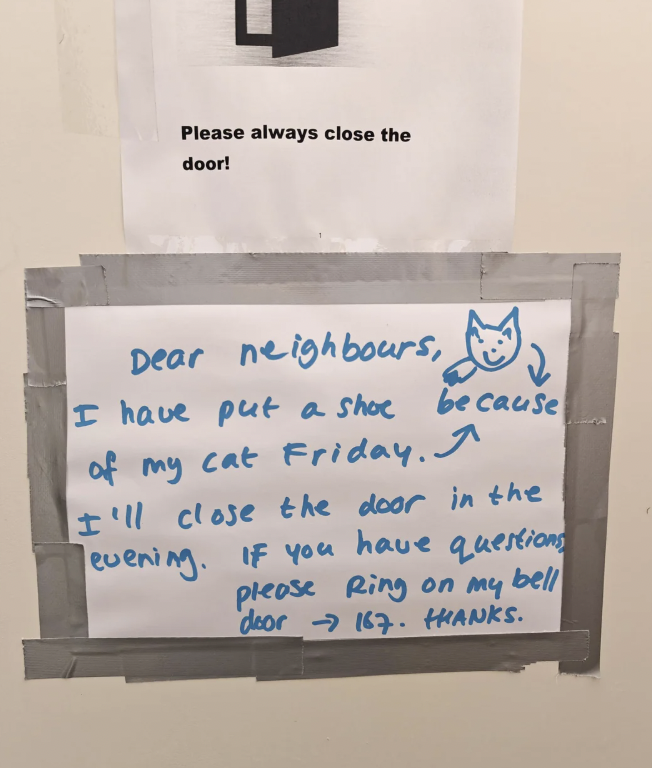 Please always close the
door!
1
Dear neighbours,
I have put a shoe because
of my cat Friday.
I'll close the door in the
evening. If you have questions
please Ring on my bell
door → 167. THANKS.